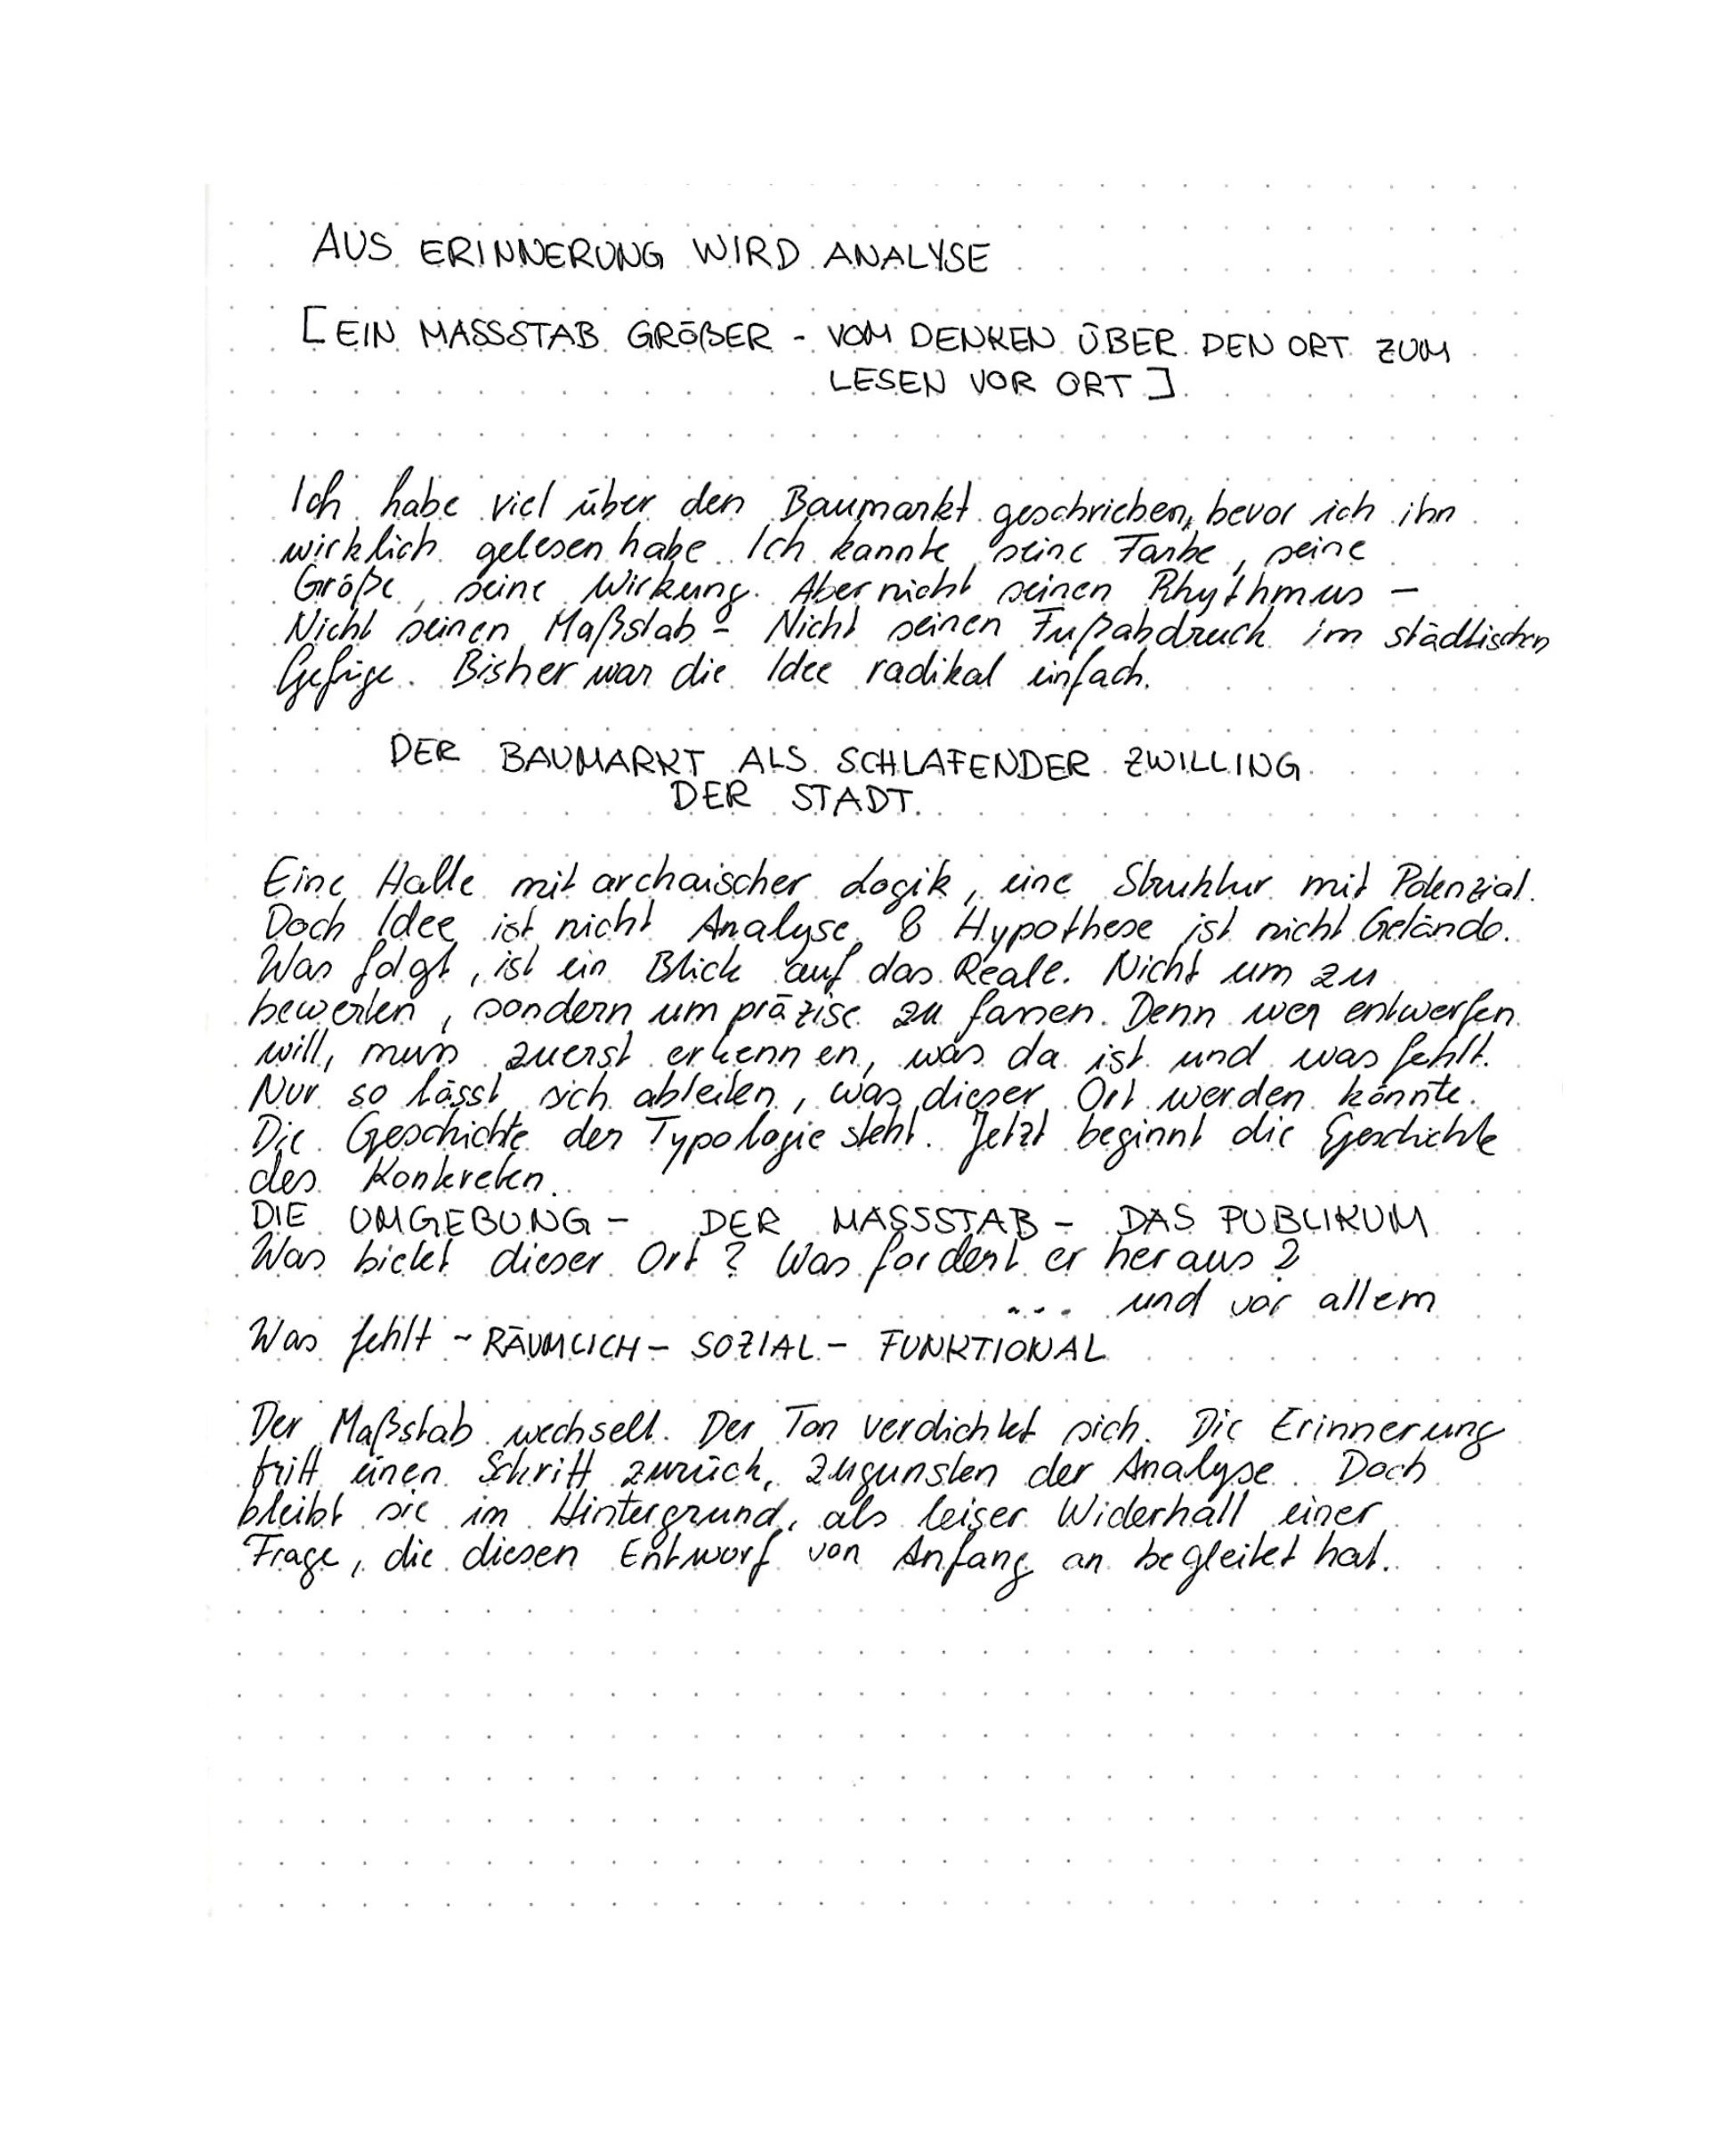 AUS ERINNERUNG WIRD ANALYSE
[EIN MASSSTAB GRÖßER - VOM DENKEN ÜBER DEN ORT ZUM
LESEN VOR ORT]
Ich habe viel über den Baumarkt geschrieben, bevor ich ihn
wirklich gelesen habe. Ich kannte seine Farbe, seine
Größe, seine Wirkung. Aber nicht seinen Rhythmus –
Nicht seinen Maßstab – Nicht seinen Fußabdruck im städtischen
Gefüge. Bisher war die Idee radikal einfach.
DER BAUMARKT ALS SCHLAFENDER ZWILLING
DER STADT.
Eine Halle mit archaischer Logik, eine Struktur mit Potenzial.
Doch Idee ist nicht Analyse & Hypothese ist nicht Gelände.
Was folgt, ist ein Blick auf das Reale. Nicht um zu
bewerten, sondern um präzise zu fassen. Denn wer entwerfen
will, muss zuerst erkennen, was da ist und was fehlt.
Nur so lässt sich ableiten, was dieser Ort werden könnte.
Die Geschichte der Typologie steht. Jetzt beginnt die Geschichte
des Konkreten.
DIE UMGEBUNG – DER MASSSTAB – DAS PUBLIKUM
Was bietet dieser Ort? Was fordert er heraus?
... und vor allem
Was fehlt - RÄUMLICH – SOZIAL – FUNKTIONAL
Der Maßstab wechselt. Der Ton verdichtet sich. Die Erinnerung
tritt einen Schritt zurück, zugunsten der Analyse. Doch
bleibt sie im Hintergrund, als leiser Widerhall einer
Frage, die diesen Entwurf von Anfang an begleitet hat.